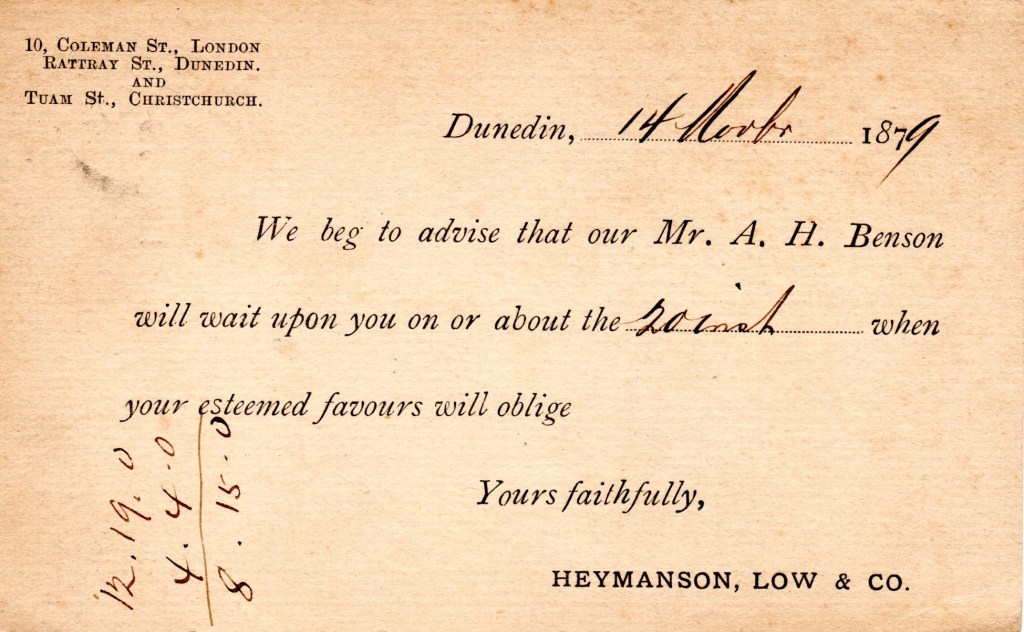 10, Coleman St., London
Rattray St., Dunedin.
and
Tuam St., Christchurch.
Dunedin, 14 Novbr 1879
We beg to advise that our Mr. A. H. Benson
will wait upon you on or about the 20 inst when
your esteemed favours will oblige
Yours faithfully,
HEYMANSON, LOW & CO.
12.19.0
4.4.0
8.15.0